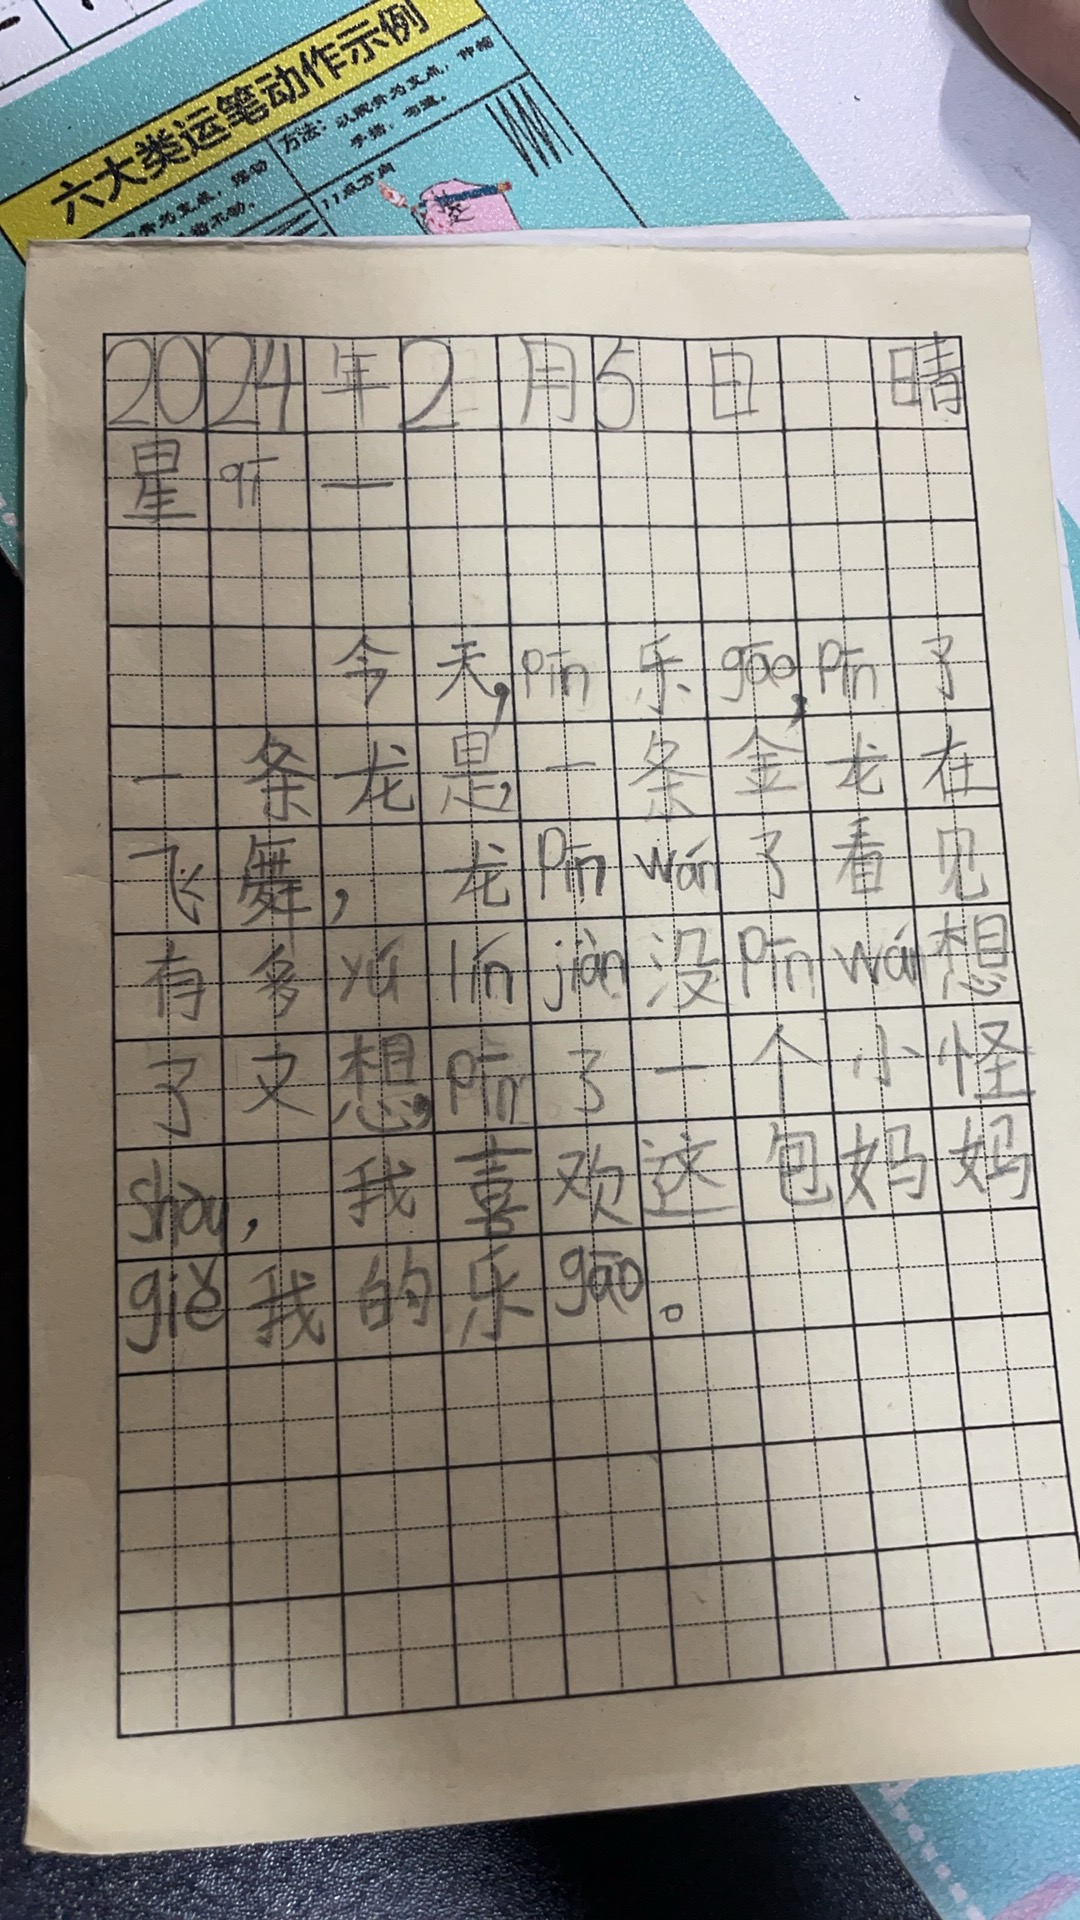 六大类运笔动作示例
方法：以腕骨为支点，伸缩
手指，书握。
11点方向
2024年2月5日 晴
星qī一
今天，pīn乐gāo，pīn了
一条龙是，一条金龙在
飞舞，龙Pīn wán了看见
有多yú lín jiàn没Pīn wán想
了又想，pīn了一个小怪
shòu，我喜欢这包妈妈
giě我的乐gāo。